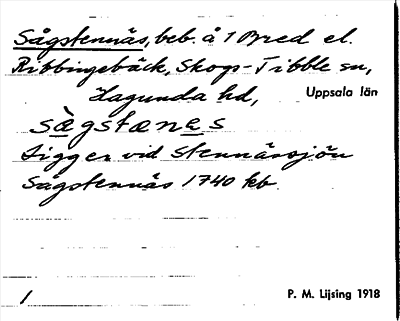 Sågstennäs, beb. å 1 Bred el.
Ribbingebäck, Skogs-Tibble sn,
Hagunda hd, Uppsala län
sàgstænes
Ligger vid Stennässjön
Sågstennäs 1740 kb
1 P. M. Lijsing 1918